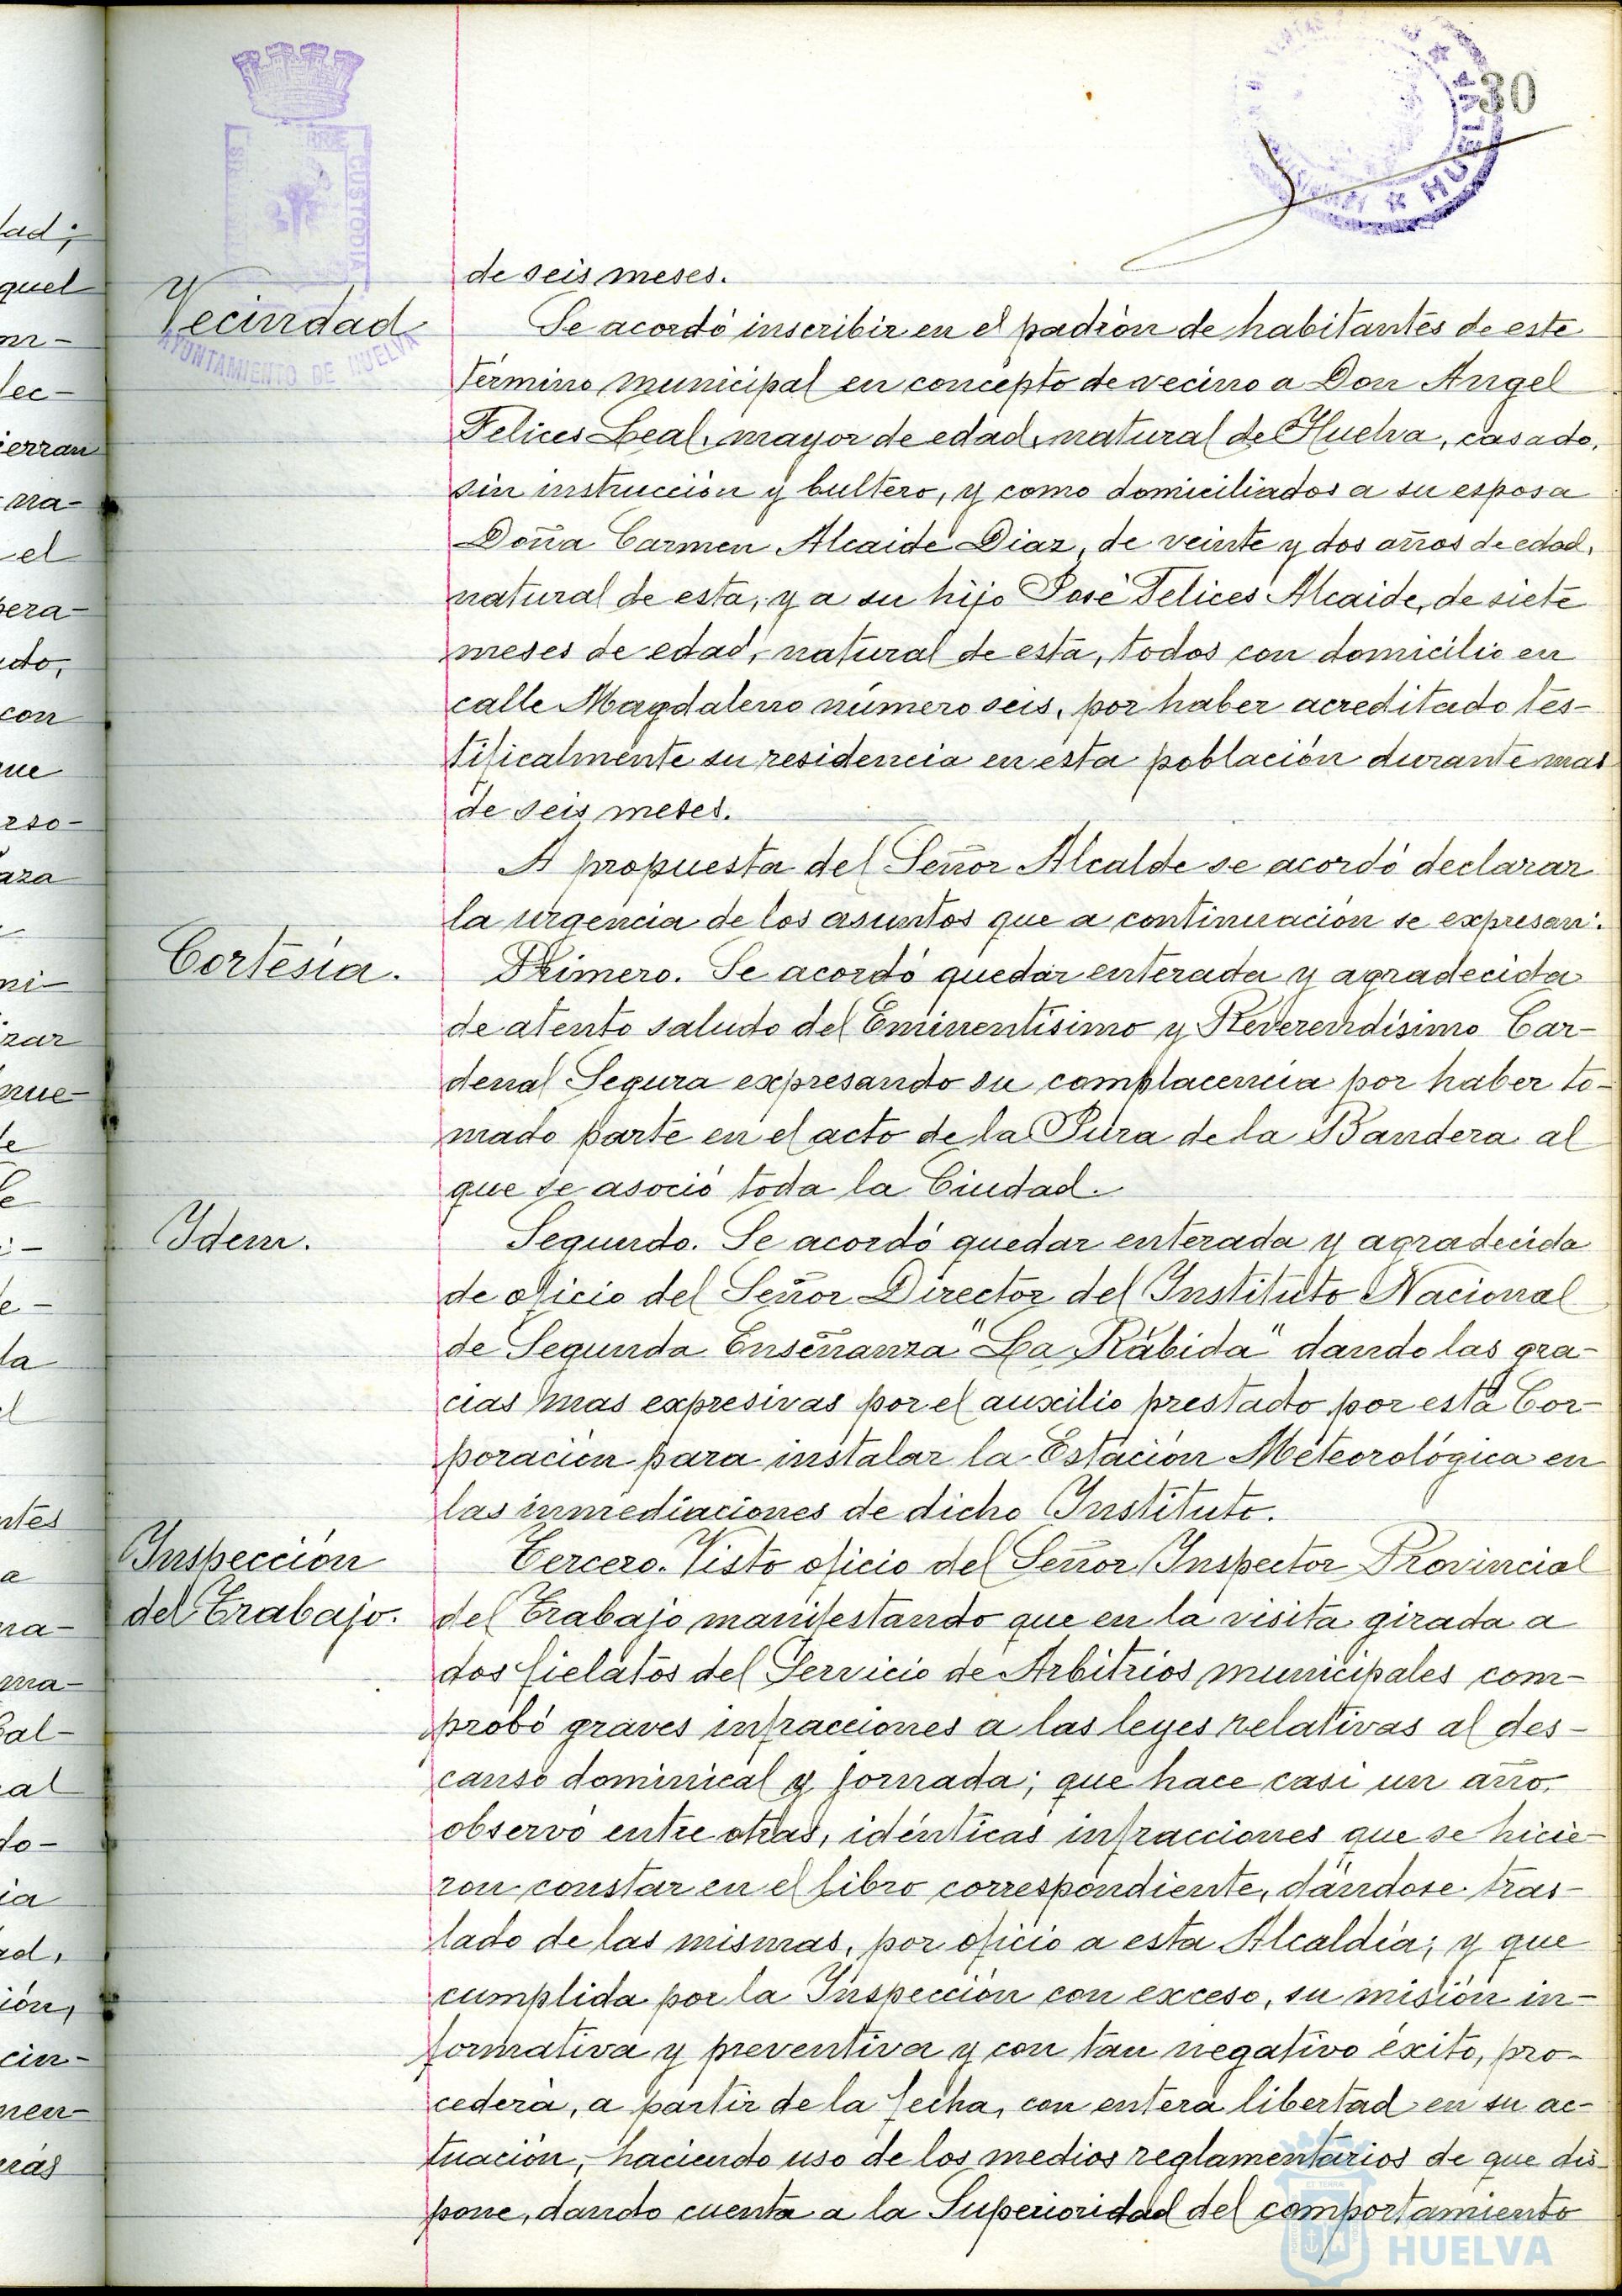 30
HUELVA
CUSTODIA
AYUNTAMIENTO DE HUELVA
de seis meses.
Vecindad
Se acordó inscribir en el padrón de habitantes de este
término municipal en concepto de vecino a Don Angel
Felices Leal, mayor de edad, natural de Huelva, casado,
sin instrucción y bultero, y como domiciliados a su esposa
Doña Carmen Alcaide Diaz, de veinte y dos años de edad,
natural de esta, y a su hijo José Felices Alcaide, de siete
meses de edad, natural de esta, todos con domicilio en
calle Magdaleno número seis, por haber acreditado tes-
tificalmente su residencia en esta población durante mas
de seis meses.
A propuesta del Señor Alcalde se acordó declarar
la urgencia de los asuntos que a continuación se expresan:
Cortesía.
Primero. Se acordó quedar enterada y agradecida
de atento saludo del Eminentísimo y Reverendísimo Car-
denal Segura expresando su complacencia por haber to-
mado parte en el acto de la Pura de la Bandera al
que se asoció toda la Ciudad.
Idem.
Segundo. Se acordó quedar enterada y agradecida
de oficio del Señor Director del Instituto Nacional
de Segunda Enseñanza "La Rábida" dando las gra-
cias mas expresivas por el auxilio prestado por esta Cor-
poración para instalar la Estación Meteorológica en
las inmediaciones de dicho Instituto.
Inspección
del Trabajo.
Tercero. Visto oficio del Señor Inspector Provincial
del Trabajo manifestando que en la visita girada a
dos fielatos del Servicio de Arbitrios municipales com-
probó graves infracciones a las leyes relativas al des-
canso dominical y jornada; que hace casi un año,
observó entre otras, idénticas infracciones que se hicie-
ron constar en el libro correspondiente, dándose tras-
lado de las mismas, por oficio a esta Alcaldía; y que
cumplida por la Inspección con exceso, su misión in-
formativa y preventiva y con tan negativo éxito, pro-
cederá, a partir de la fecha, con entera libertad en su ac-
tuación, haciendo uso de los medios reglamentarios de que dis-
pone, dando cuenta a la Superioridad del comportamiento
HUELVA